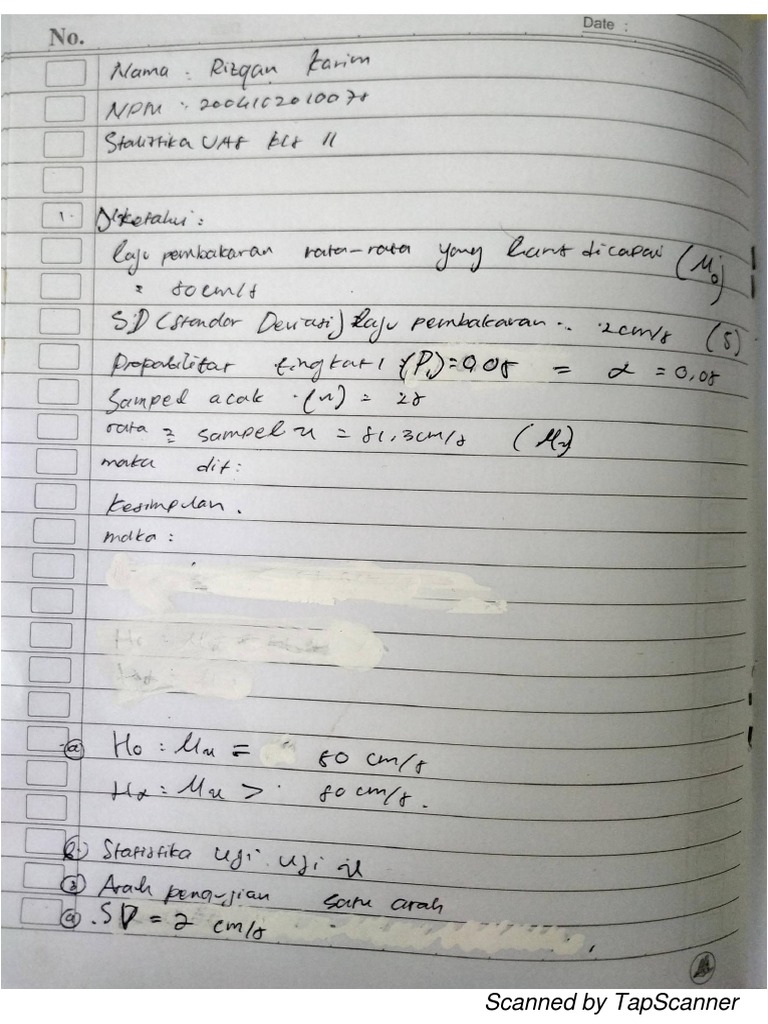 No.
Date :
Nama : Rizqan Karim
NPM :
Statistika UAS kls 11
1. Diketahui :
laju pembakaran rata-rata yang harus dicapai (μ0)
= 80 cm/s
SD (Standar Deviasi) laju pembakaran = 2cm/s (s)
Propabilitas tingkat 1 (P1) = 0,05 = α = 0,05
Sampel acak (n) = 25
rata = sampel x = 81,3cm/s (μx)
maka dit :
Kesimpulan .
maka :
a H0 : μx = 80 cm/s
Hα : μx > 80 cm/s .
b) Statistika Uji Uji z
3) Arah pengujian satu arah
SD = 2 cm/s
Scanned by TapScanner